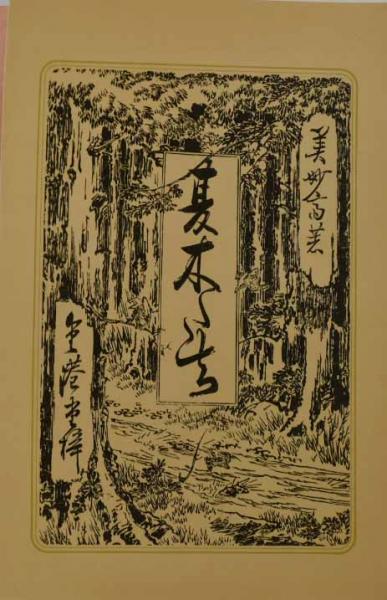 美妙斎著
夏木たち
金港堂梓